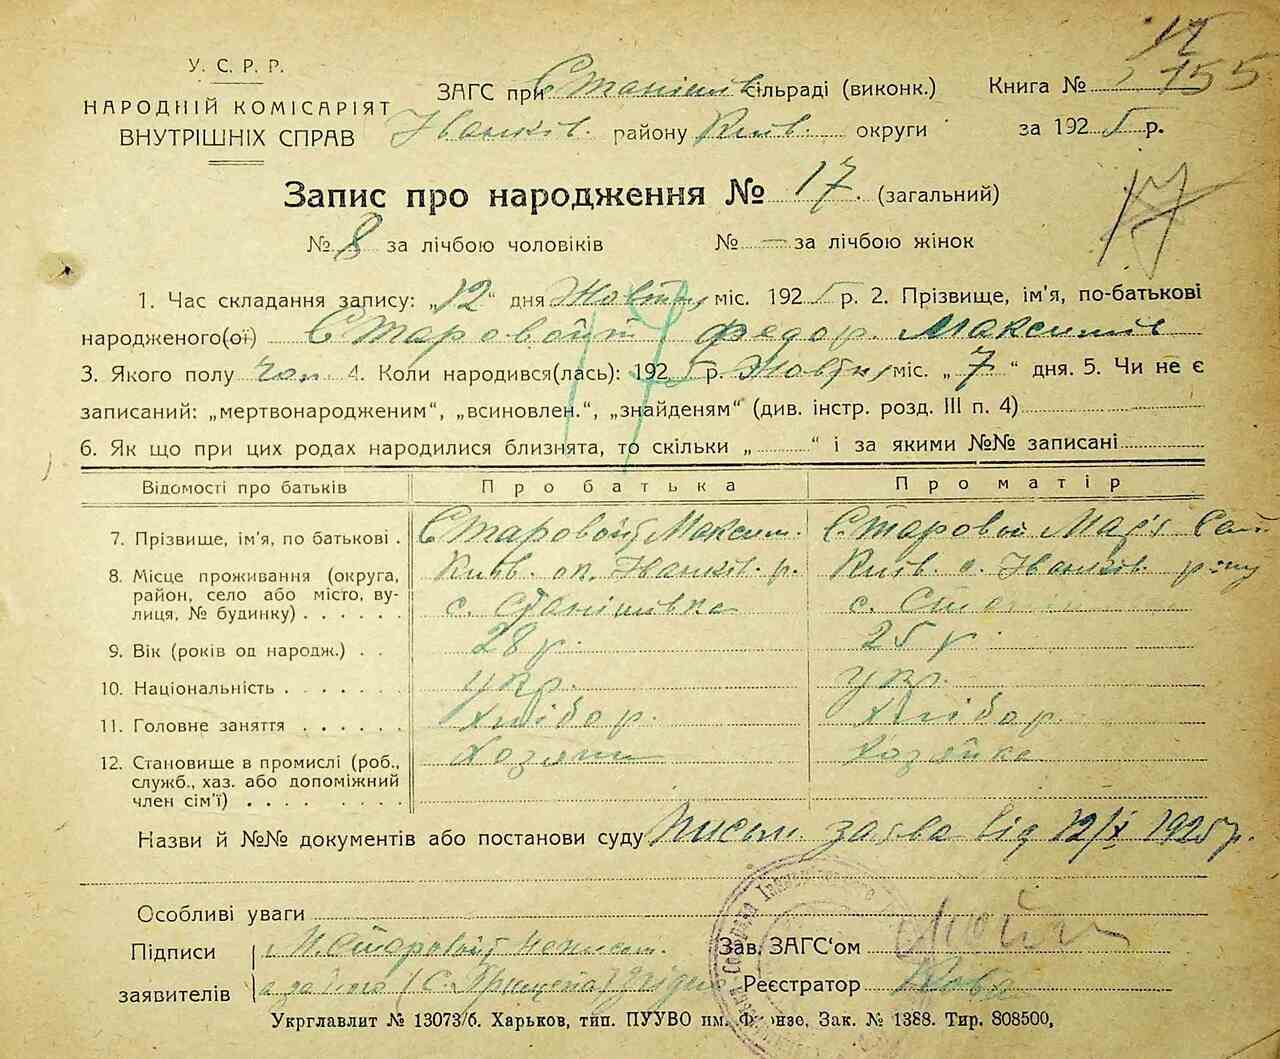 У. С. Р. Р.
НАРОДНІЙ КОМІСАРІЯТ
ВНУТРІШНІХ СПРАВ
ЗАГС при Станішів сільраді (виконк.)
Іванків. району Київ. округи
Книга №
155
за 1925 р.
Запис про народження № 17. (загальний)
17
№ 8 за лічбою чоловіків № — за лічбою жінок
1. Час складання запису: „12“ дня Жовтн, міс. 1925 р. 2. Прізвище, ім'я, по-батькові
народженого(ої) Старовойт Федор. Максимів
3. Якого полу Чол. 4. Коли народився(лась): 1925 р. Жовтн, міс. „7“ дня. 5. Чи не є
записаний: „мертвонародженим“, „всиновлен.“, „знайденям“ (див. інстр. розд. III п. 4)
6. Як що при цих родах народилися близнята, то скільки „ “ і за якими №№ записані
17
Відомості про батьків Про батька Про матір
7. Прізвище, ім'я, по батькові . Старовойт Максим. Старовой Мар'я
8. Місце проживання (округа, Київ. ок. Іванків. р. Київ. о. Іванків. р-ну
район, село або місто, ву-
лиця, № будинку) . . . . . . с. Станішівка с.
9. Вік (років од народж.) . . 28 р. 25 р.
10. Національність . . . . . . . укр. укр.
11. Головне заняття . . . . . . Хлібор. Хлібор.
12. Становище в промислі (роб., Хозяин Хозяйка
служб., хаз. або допоміжний
член сім'ї) . . . . . . . . .
Назви й №№ документів або постанови суду Письм. заява від 12/X 1925 р.
Особливі уваги
Підписи М. Старовойт неписьм. Зав. ЗАГС'ом
заявителів а за його Реєстратор
Укрглавлит № 13073/б. Харьков, тип. ПУУВО им. Фрунзе, Зак. № 1388. Тир. 808500,